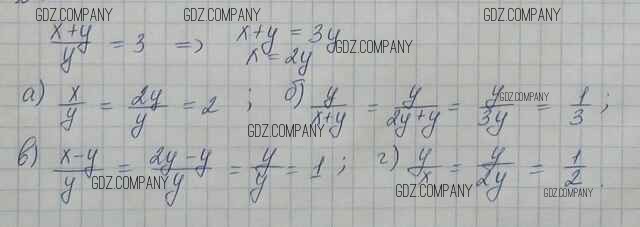 GDZ.COMPANY GDZ.COMPANY
(x+y)/y = 3 => x+y = 3y
GDZ.COMPANY
x = 2y
а) x/y = 2y/y = 2 ; б) y/(x+y) = y/(2y+y) = y/3y = 1/3 ;
GDZ.COMPANY
GDZ.COMPANY
в) (x-y)/y = (2y-y)/y = y/y = 1 ; г) y/x = y/2y = 1/2 .
GDZ.COMPANY GDZ.COMPANY GDZ.COMPANY